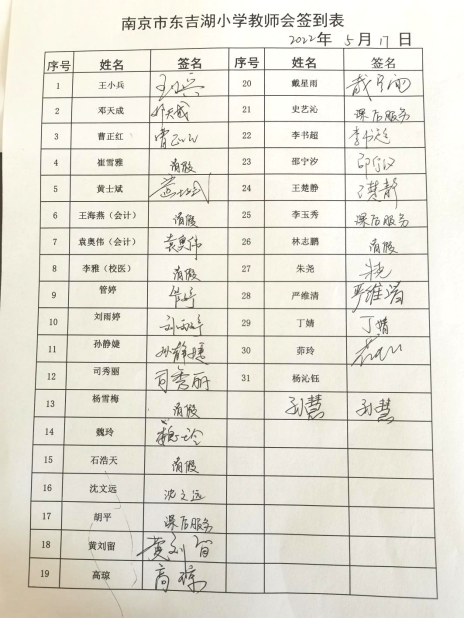 南京市东吉湖小学教师会签到表
2022年 5月 17日
序号 姓名 签名 序号 姓名 签名
1 王小兵 20 戴星雨 戴星雨
2 邓天成 邓天成 21 史艺沁 课后服务
3 曹正红 曹正红 22 李书超 李书超
4 崔雪雅 请假 23 邵宁汐 邵宁汐
5 黄士斌 黄士斌 24 王楚静 王楚静
6 王海燕（会计） 请假 25 李玉秀 课后服务
7 袁奥伟（会计） 袁奥伟 26 林志鹏 请假
8 李雅（校医） 请假 27 朱尧 朱尧
9 管婷 管婷 28 严维清 严维清
10 刘雨婷 刘雨婷 29 丁婧 丁婧
11 孙静婕 孙静婕 30 茆玲
12 司秀丽 司秀丽 31 杨沁钰
13 杨雪梅 请假 孙慧 孙慧
14 魏玲 魏玲
15 石浩天 请假
16 沈文远 沈文远
17 胡平 课后服务
18 黄刘留 黄刘留
19 高琼 高琼